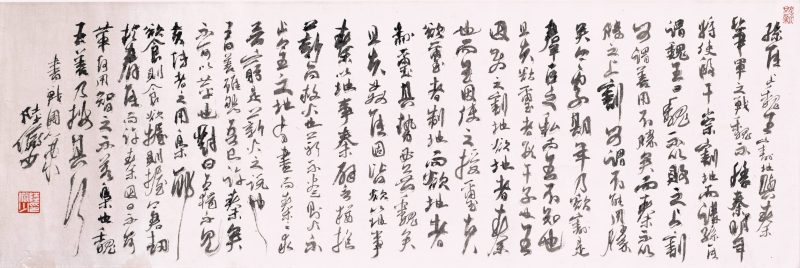 孫臣止魏王割地與秦
華軍之戰魏不勝秦明年
將使段干崇割地而講孫臣
謂魏王曰魏不以敗之上割
可謂善用不勝矣而秦不以
勝之上割可謂不能用勝
矣今處期年乃欲割是
羣臣之私而王不知也
且夫欲璽者段干子也王
因使之割地欲地者秦
也而王因使之授璽夫
欲璽者制地而欲地者
制璽其勢必無魏矣
且夫奸臣固皆欲以地事
秦以地事秦譬猶抱
薪而救火也薪不盡則火不
止今王之地有盡而秦之求
無窮是薪火之說也魏
王曰善雖然吾已許秦矣
不可以革也對曰王獨不見
夫博者之用梟邪
欲食則食欲握則握今君劫
於羣臣而許秦因曰不可
革何用智之不若梟也魏
王曰善乃按其行
書戰國策
陸儼少